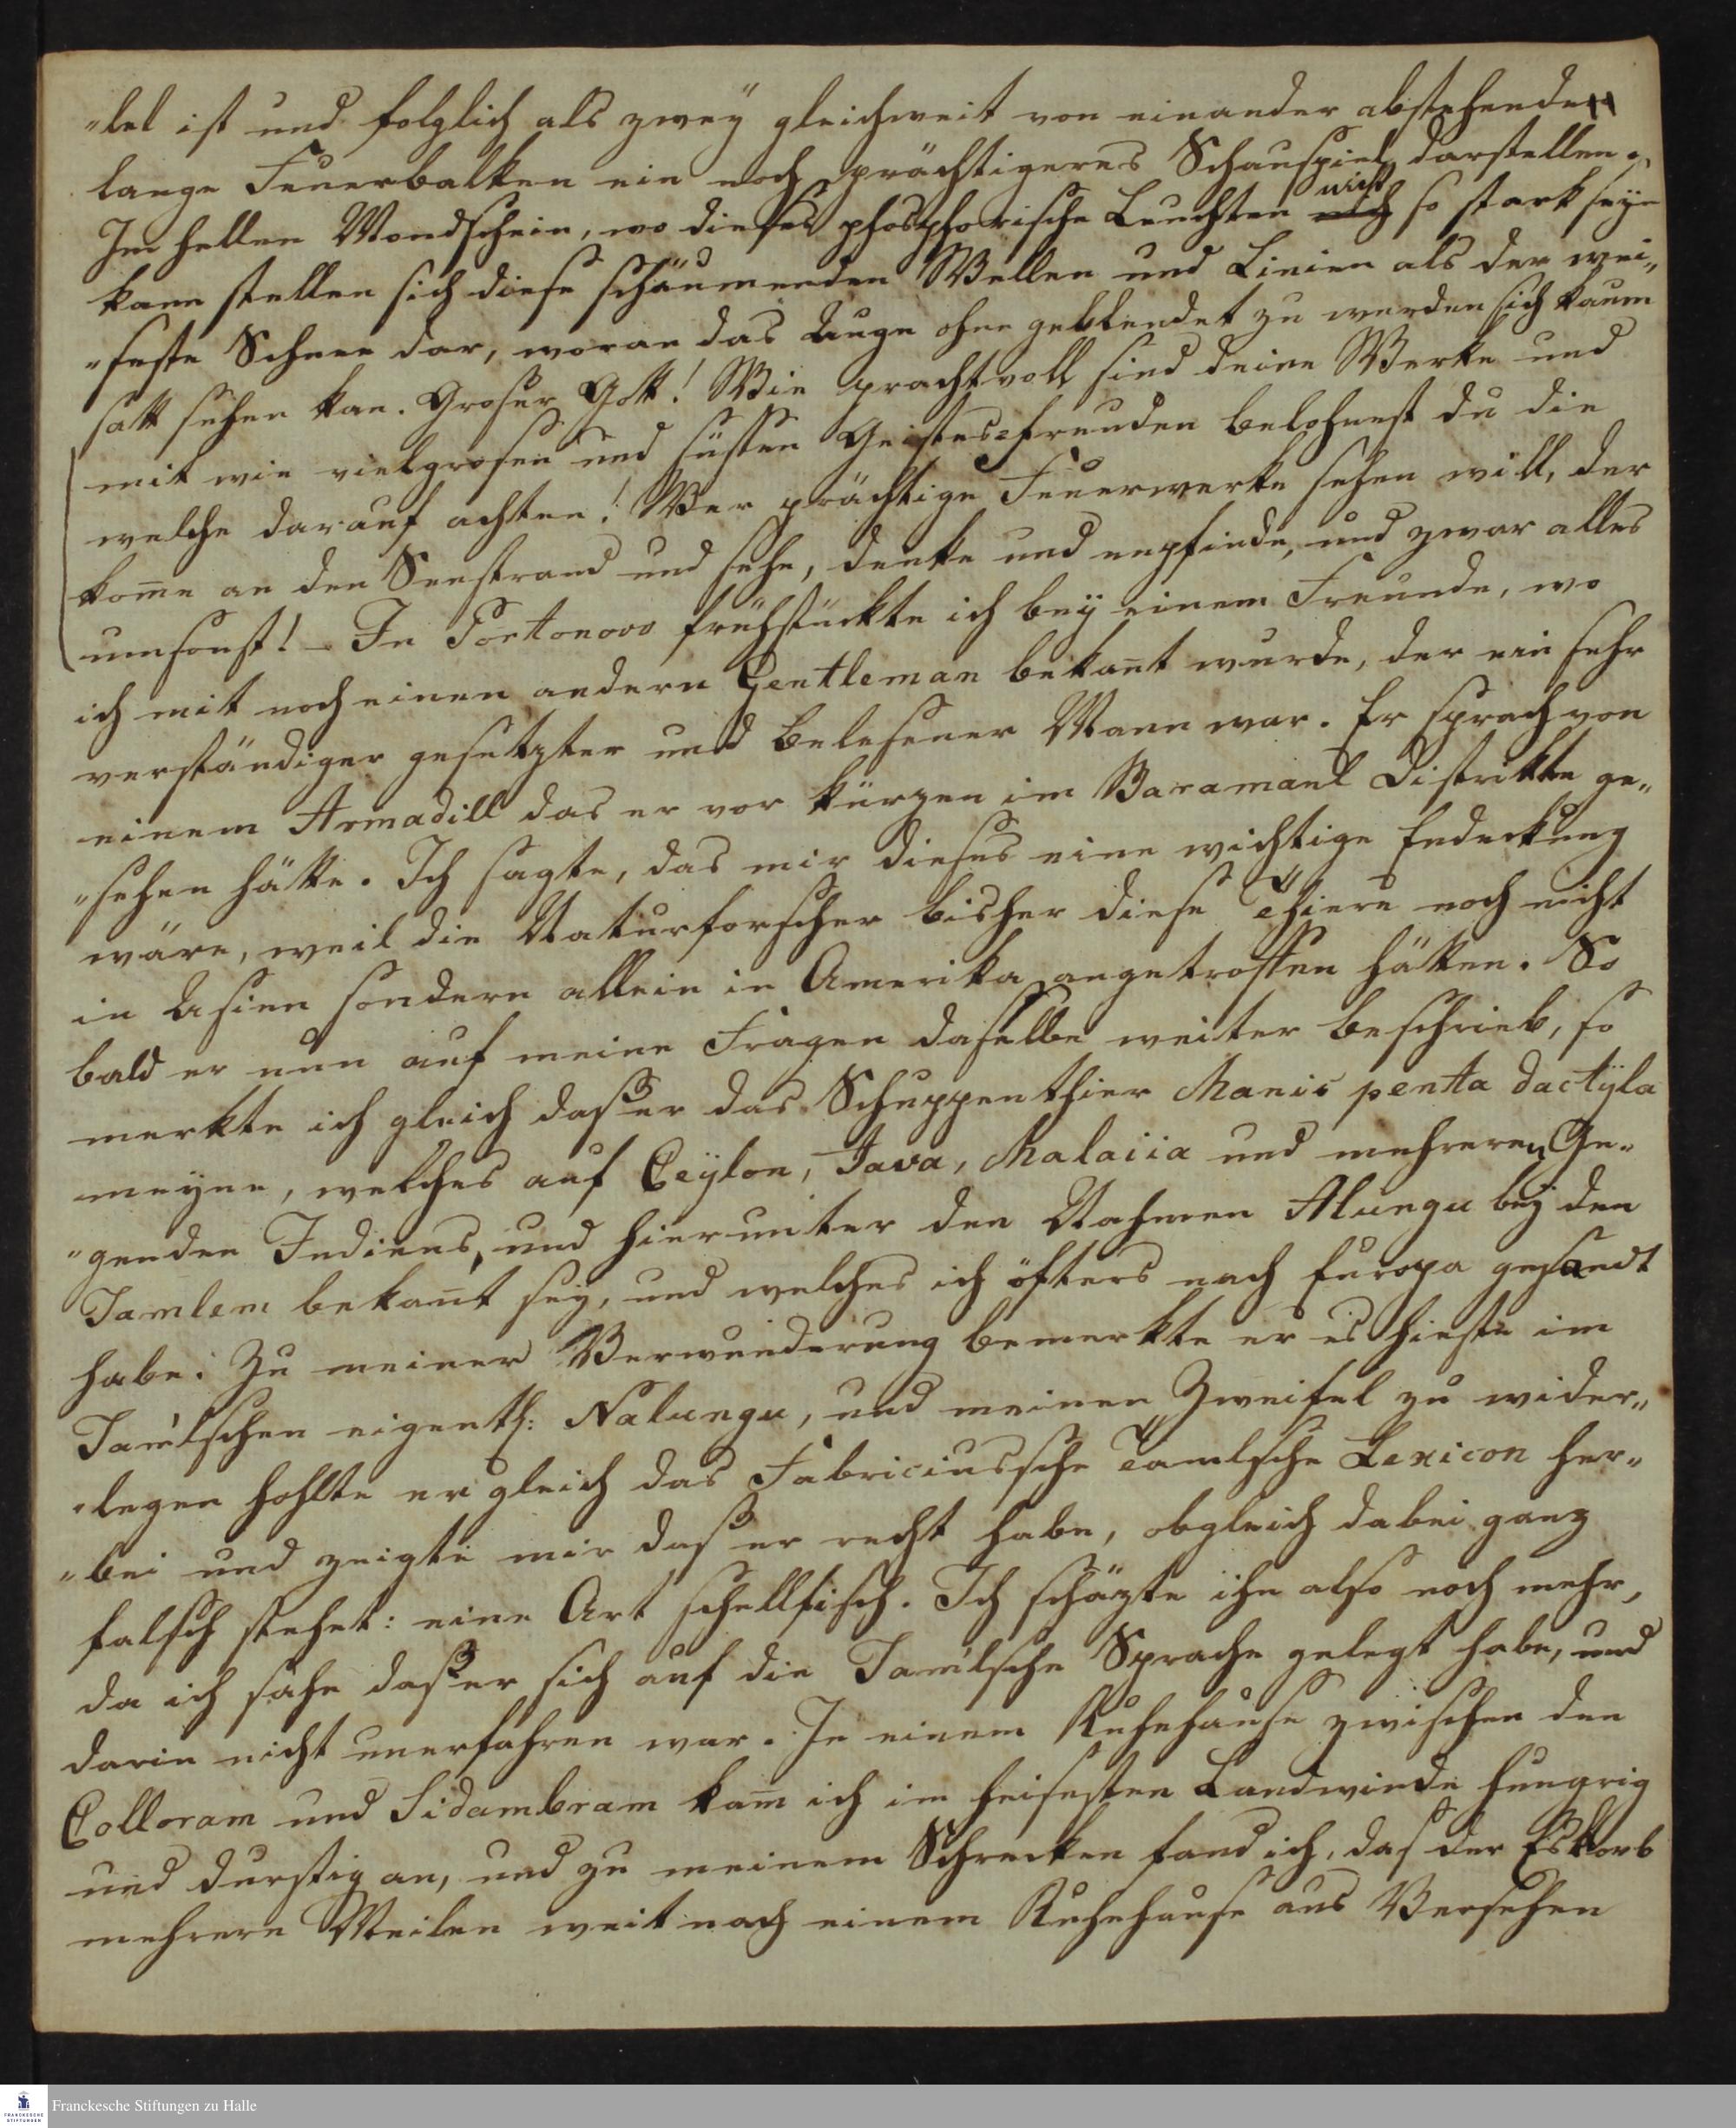 „lel ist und folglich als zwey gleichweit von einander abstehende
lange Feuerbalken ein noch prächtigeres Schauspiel darstellen.
nicht
Im hellen Mondschein, wo dieses phosphorische Leuchten so stark seyn
kann stellen sich diese schäumenden Wellen und Linien als der wei„
„seste Schnee dar, woran das Auge ohne geblendet zu werden sich kaum
satt sehen kan. Groser Gott! Wie prachtvoll sind deine Werke und
mit wie vielgrosen und süssen Geistesfreuden belohnest du die
welche darauf achten! Wer prächtige Feuerwerke sehen will, der
kom̅e an den Seestrand und sehe, denke und enpfinde, und zwar alles
umsonst! – In Portonovo frühstückte ich bey einem Freunde, wo
ich mit noch einen andern Gentleman bekan̅t wurde, der ein sehr
verständiger gesetzter und belesener Mann war. Er sprach von
einem Armadill das er vor kürzen im Baramaul Distrikte ge„
„sehen hätte. Ich sagte, das mir dieses eine wichtige Endeckung
wäre, weil die Naturforscher bisher diese Thiere noch nicht
in Asien sondern allein in Amerika angetroffen hätten. So
bald er nun auf meine Fragen dasselbe weiter beschrieb, so
merkte ich gleich dass er das Schuppenthier Manis penta dactÿla
meyne, welches auf Ceÿlon, Java, Malaiia und mehreren Ge„
„genden Indiens, und hier unter den Nahmen Alungu beÿ den
Tamlern bekan̅t sey, und welches ich öfters nach Europa gesandt
habe. Zu meiner Verwunderung bemerkte er es hieste im
Tam̅lschen eigentl: Nalungu, und meinen Zweifel zu wider„
„legen hohlte er gleich das Fabriciussche Tamlsche Lexicon her„
„bei und zeigte mir dass er recht habe, obgleich dabei ganz
falsch stehet: eine Art schellfisch. Ich schäzte ihn also noch mehr,
da ich sahe dass er sich auf die Tamlsche Sprache gelegt habe, und
darin nicht unerfahren war. In einem Ruhehause zwischen den
Colloram und Sidambram kam̅ ich im heisesten Landwinde hungrig
und durstig an, und zu meinem Schrecken fand ich, das der Eskorb
mehrere Meilen weit nach einem Ruhehause aus Versehen
Franckesche Stiftungen zu Halle
FRANCKESCHE
STIFTUNGEN